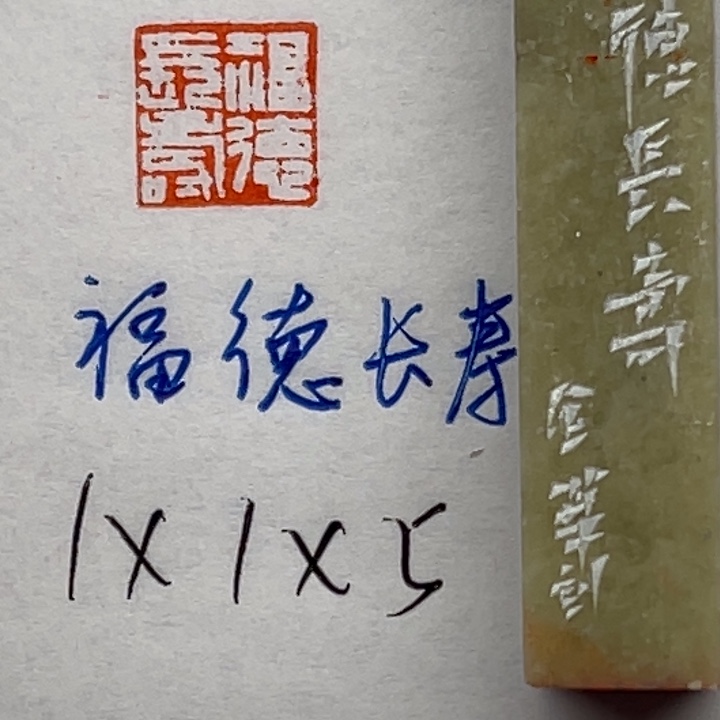 福德
長壽
福德长寿
1X1X5
德長壽